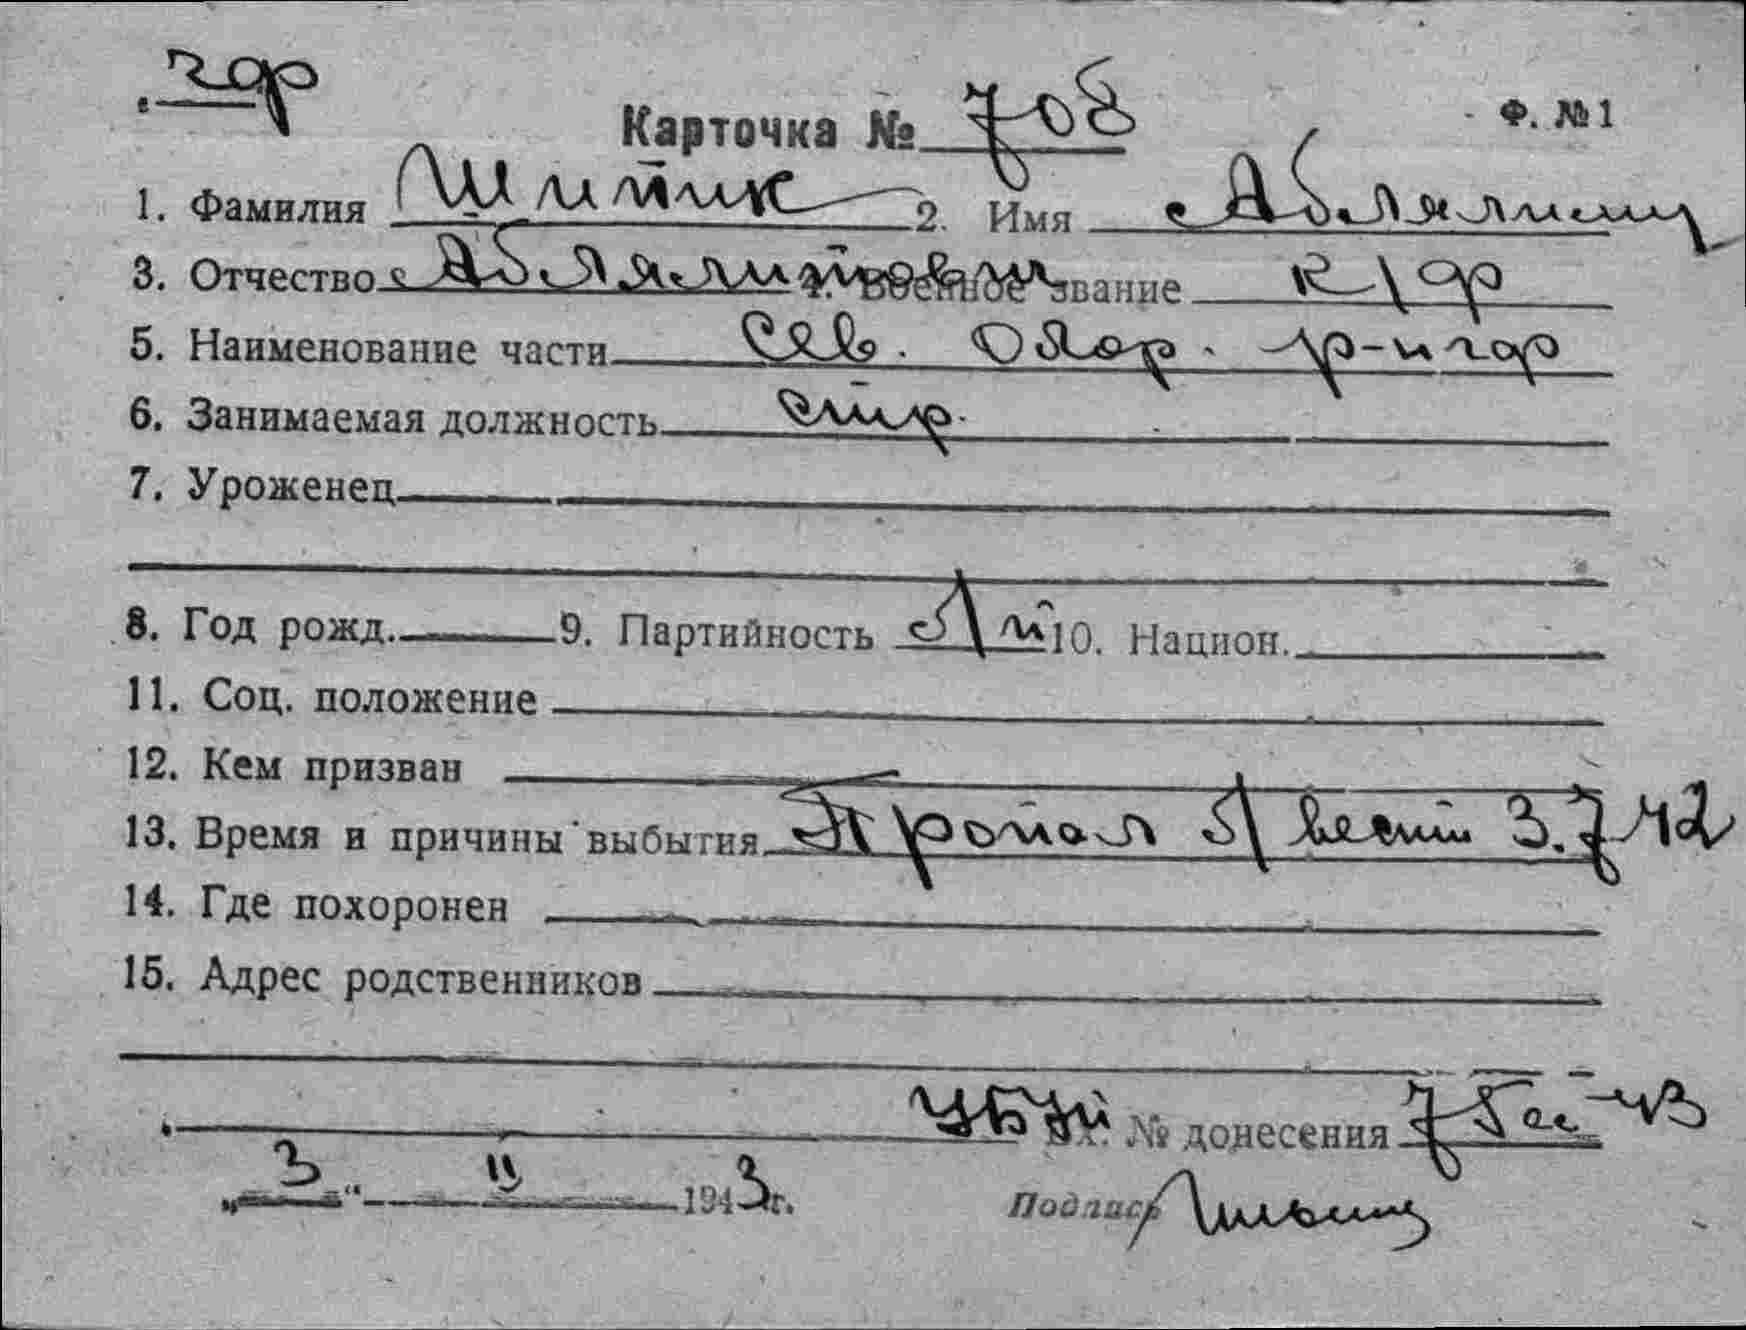 гдр
Карточка № 708 Ф. №1
1. Фамилия Шитик 2. Имя
3. Отчество 4. Военное звание к/ф
5. Наименование части Сев. обор. р-н гдр
6. Занимаемая должность стр.
7. Уроженец
8. Год рожд. 9. Партийность 10. Национ.
11. Соц. положение
12. Кем призван
13. Время и причины выбытия Пропал б/вести 3.7 42
14. Где похоронен
15. Адрес родственников
Вх. № донесения 43
„3“ II 1943г. Подпись